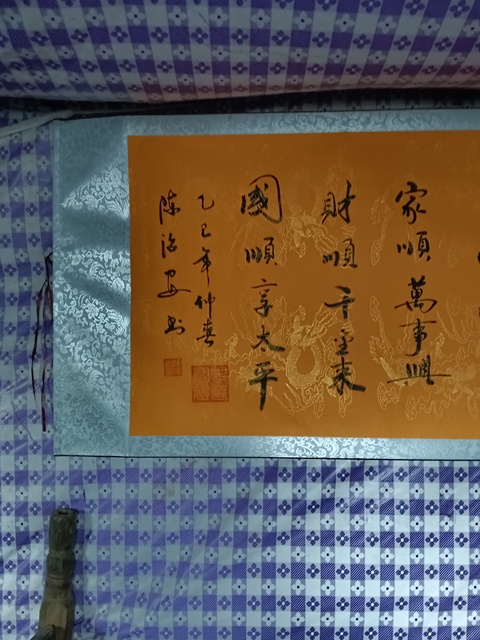 家順萬事興
財順千金來
國順享太平
乙巳年仲春
陳治安書